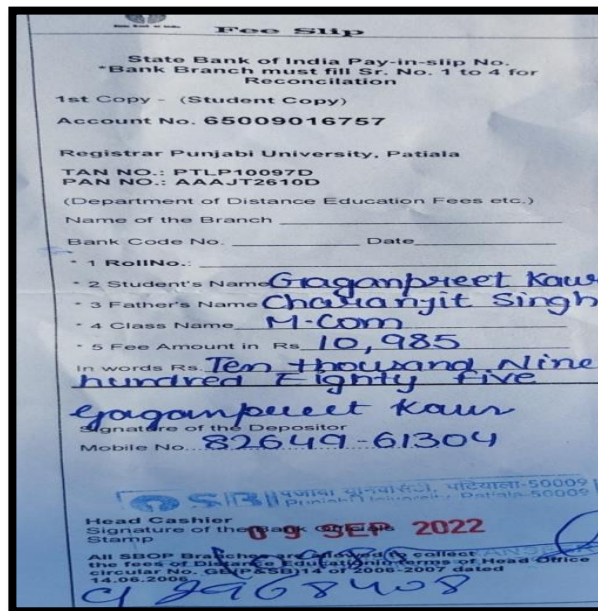 Fee Slip
State Bank of India Pay-in-slip No.
*Bank Branch must fill Sr. No. 1 to 4 for
Reconcilation
1st Copy - (Student Copy)
Account No. 65009016757
Registrar Punjabi University, Patiala
TAN NO.: PTLP10097D
PAN NO.: AAAJT2610D
(Department of Distance Education Fees etc.)
Name of the Branch
Bank Code No. Date
* 1 RollNo.:
* 2 Student's Name Gaganpreet Kaur
* 3 Father's Name Charanjit Singh
* 4 Class Name M.Com
* 5 Fee Amount in Rs 10,985
In words Rs. Ten thousand Nine
hundred Eighty five
Gaganpreet Kaur
Signature of the Depositor
Mobile No. 82649-61304
SBI पंजाबी यूनिवर्सिटी, पटियाला-50009
Punjabi University, Patiala-50009
Head Cashier
Signature of the Bank
Stamp
09 SEP 2022
All SBOP Branches are allowed to collect
the fees of Distance Education in terms of Head Office
circular No. GB(P&SB)14 of 2006-2007 dated
14.06.2006